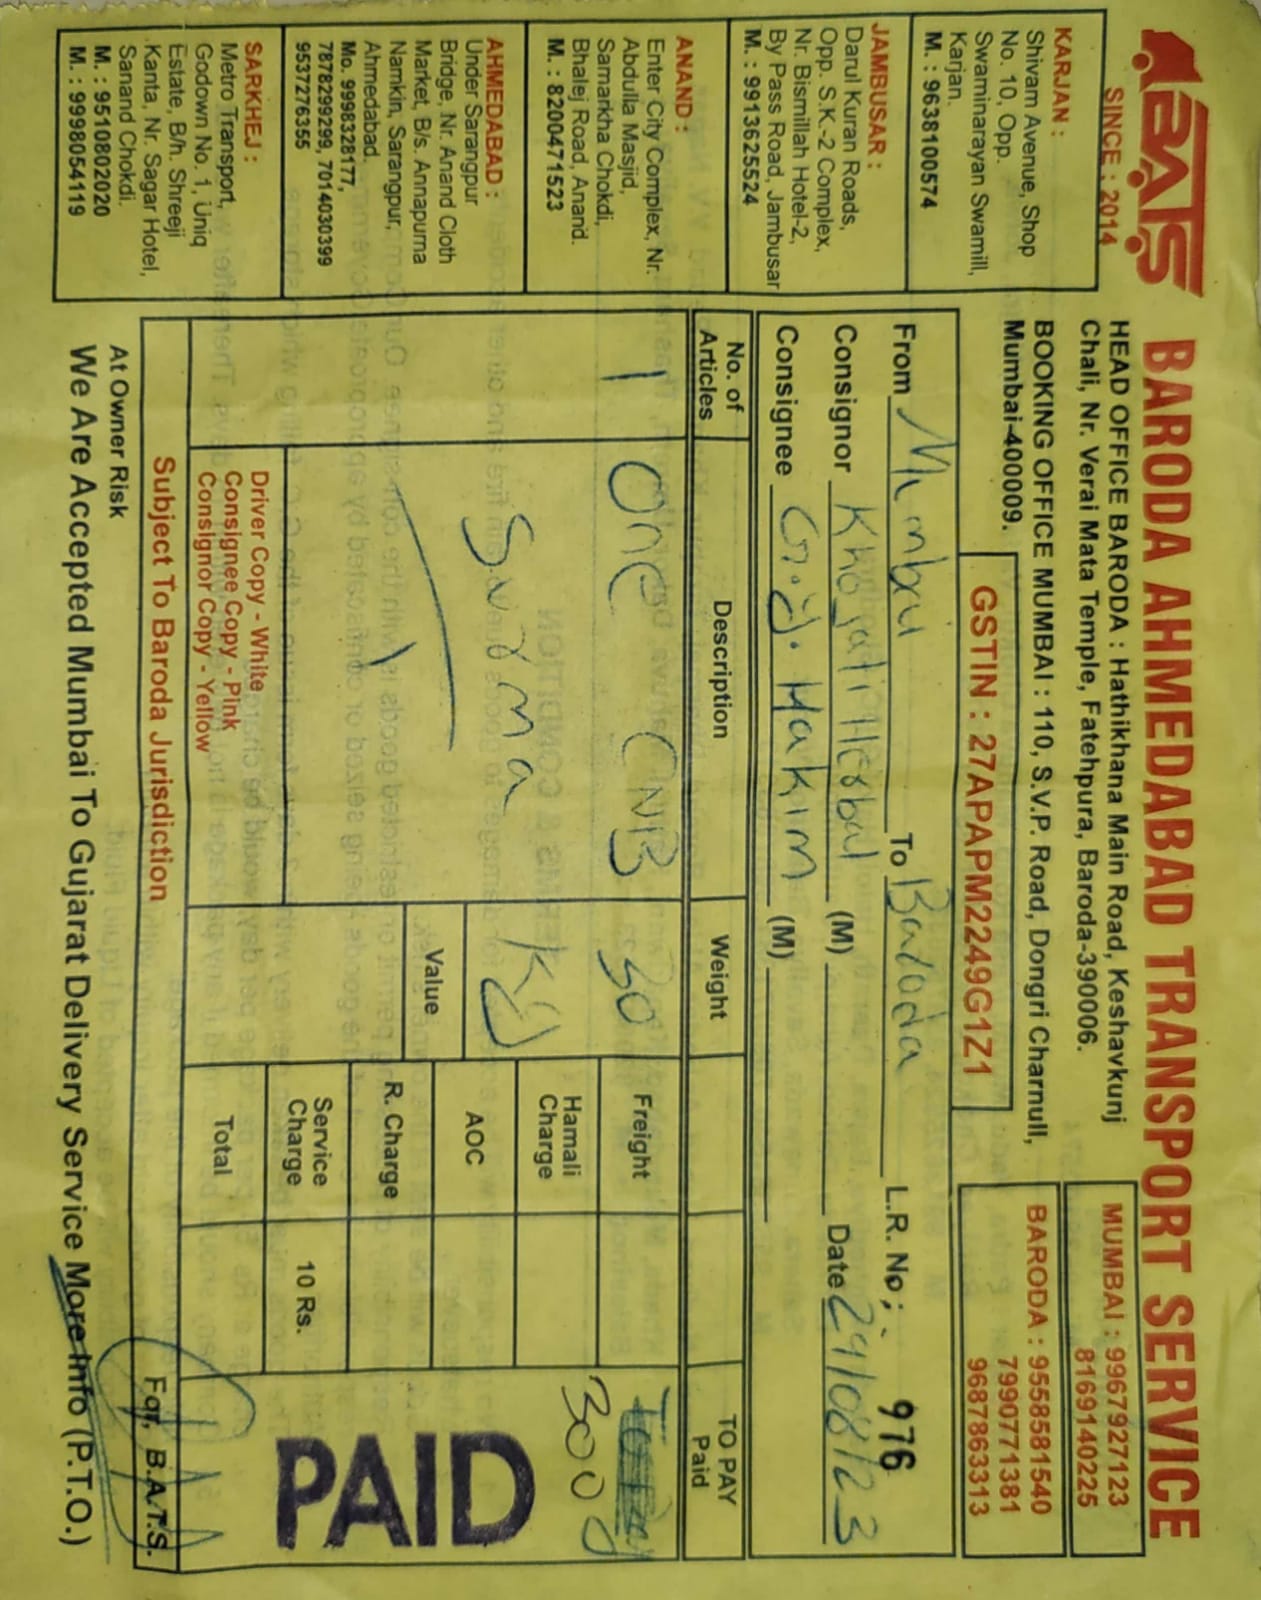 BATS
SINCE : 2014
BARODA AHMEDABAD TRANSPORT SERVICE
HEAD OFFICE BARODA : Hathikhana Main Road, Keshavkunj
Chali, Nr. Verai Mata Temple, Fatehpura, Baroda-390006.
BOOKING OFFICE MUMBAI : 110, S.V.P. Road, Dongri Charnull,
Mumbai-400009.
MUMBAI : 9967927123
8169140225
BARODA : 9558581540
7990771381
9687863313
GSTIN : 27APAPM2249G1Z1
KARJAN :
Shivam Avenue, Shop
No. 10, Opp.
Swaminarayan Swamill,
Karjan.
M. : 9638100574
JAMBUSAR :
Darul Kuran Roads,
Opp. S.K.-2 Complex,
Nr. Bismillah Hotel-2,
By Pass Road, Jambusar
M. : 9913625524
ANAND :
Enter City Complex, Nr.
Abdulla Masjid,
Samarkha Chokdi,
Bhalej Road, Anand.
M. : 8200471523
AHMEDABAD :
Under Sarangpur
Bridge, Nr. Anand Cloth
Market, B/s. Annapurna
Namkin, Sarangpur,
Ahmedabad.
Mo. 9998328177,
7878299299, 7014030399
9537276355
SARKHEJ :
Metro Transport,
Godown No. 1, Uniq
Estate, B/h. Shreeji
Kanta, Nr. Sagar Hotel,
Sanand Chokdi.
M. : 9510802020
M. : 9998054119
From Mumbai To Baroda L.R. No. : 976
Consignor Khojati (M) Date 29/08/23
Consignee Hakim (M)
No. of Articles Description Weight TO PAY Paid
1 one CNB 30 Freight
Surma KG Hamali Charge 300
AOC
Value R. Charge
Service Charge 10 Rs.
Total
PAID
Driver Copy - White
Consignee Copy - Pink
Consignor Copy - Yellow
Subject To Baroda Jurisdiction
For, B.A.T.S.
At Owner Risk
We Are Accepted Mumbai To Gujarat Delivery Service More Info (P.T.O.)